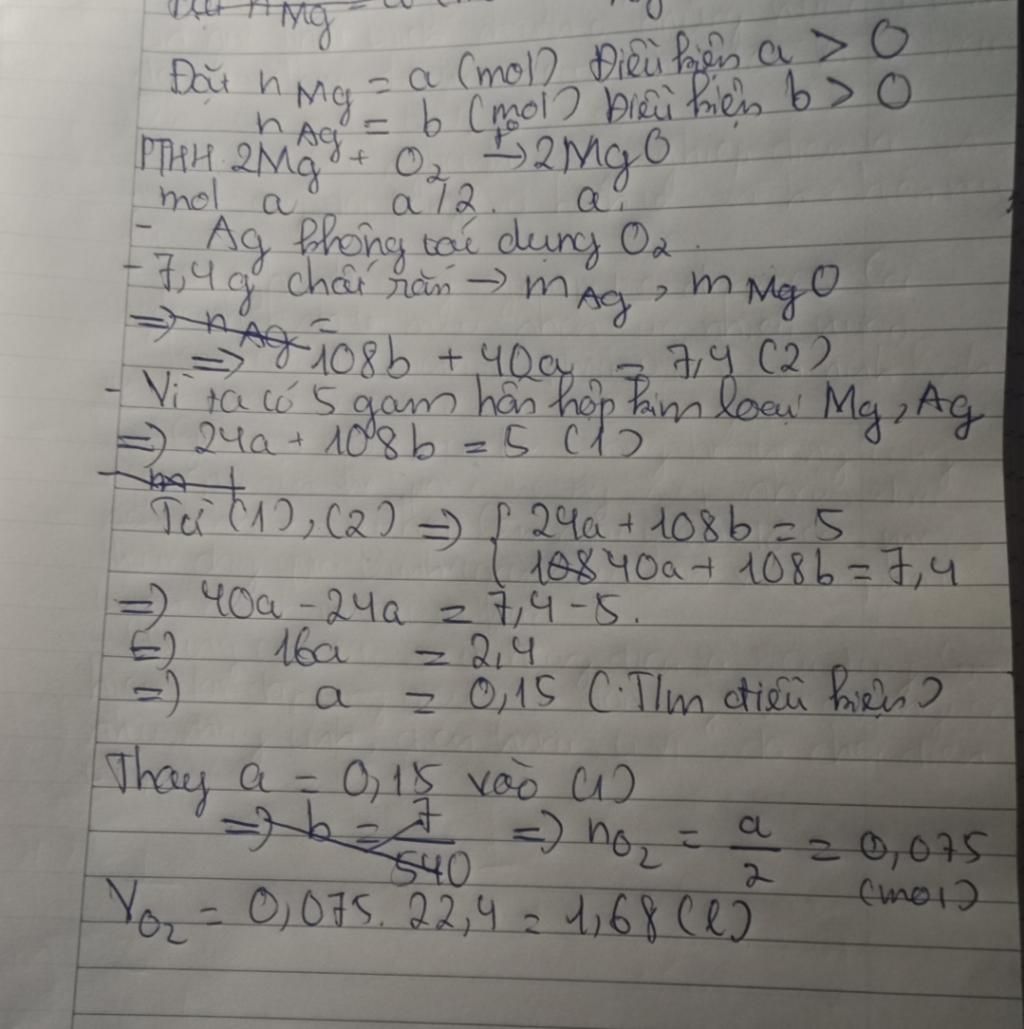 n Mg =
Đặt n Mg = a (mol) Điều kiện a > 0
n Ag = b (mol) Điều kiện b > 0
PTHH 2Mg + O₂ →t° 2MgO
mol a a/2. a.
- Ag không tác dụng O₂.
- 7,4g chất rắn → m Ag, m MgO
=> n Ag =
=> 108b + 40a = 7,4 (2)
- Vì ta có 5 gam hỗn hợp kim loại Mg, Ag
=> 24a + 108b = 5 (1)
Từ (1), (2) => { 24a + 108b = 5
10840a + 108b = 7,4
=> 40a - 24a = 7,4 - 5.
(=) 16a = 2,4
=> a = 0,15 (T/m điều kiện)
Thay a = 0,15 vào (1)
=> b = 7/540 => nO₂ = a/2 = 0,075
(mol)
VO₂ = 0,075. 22,4 = 1,68 (l)